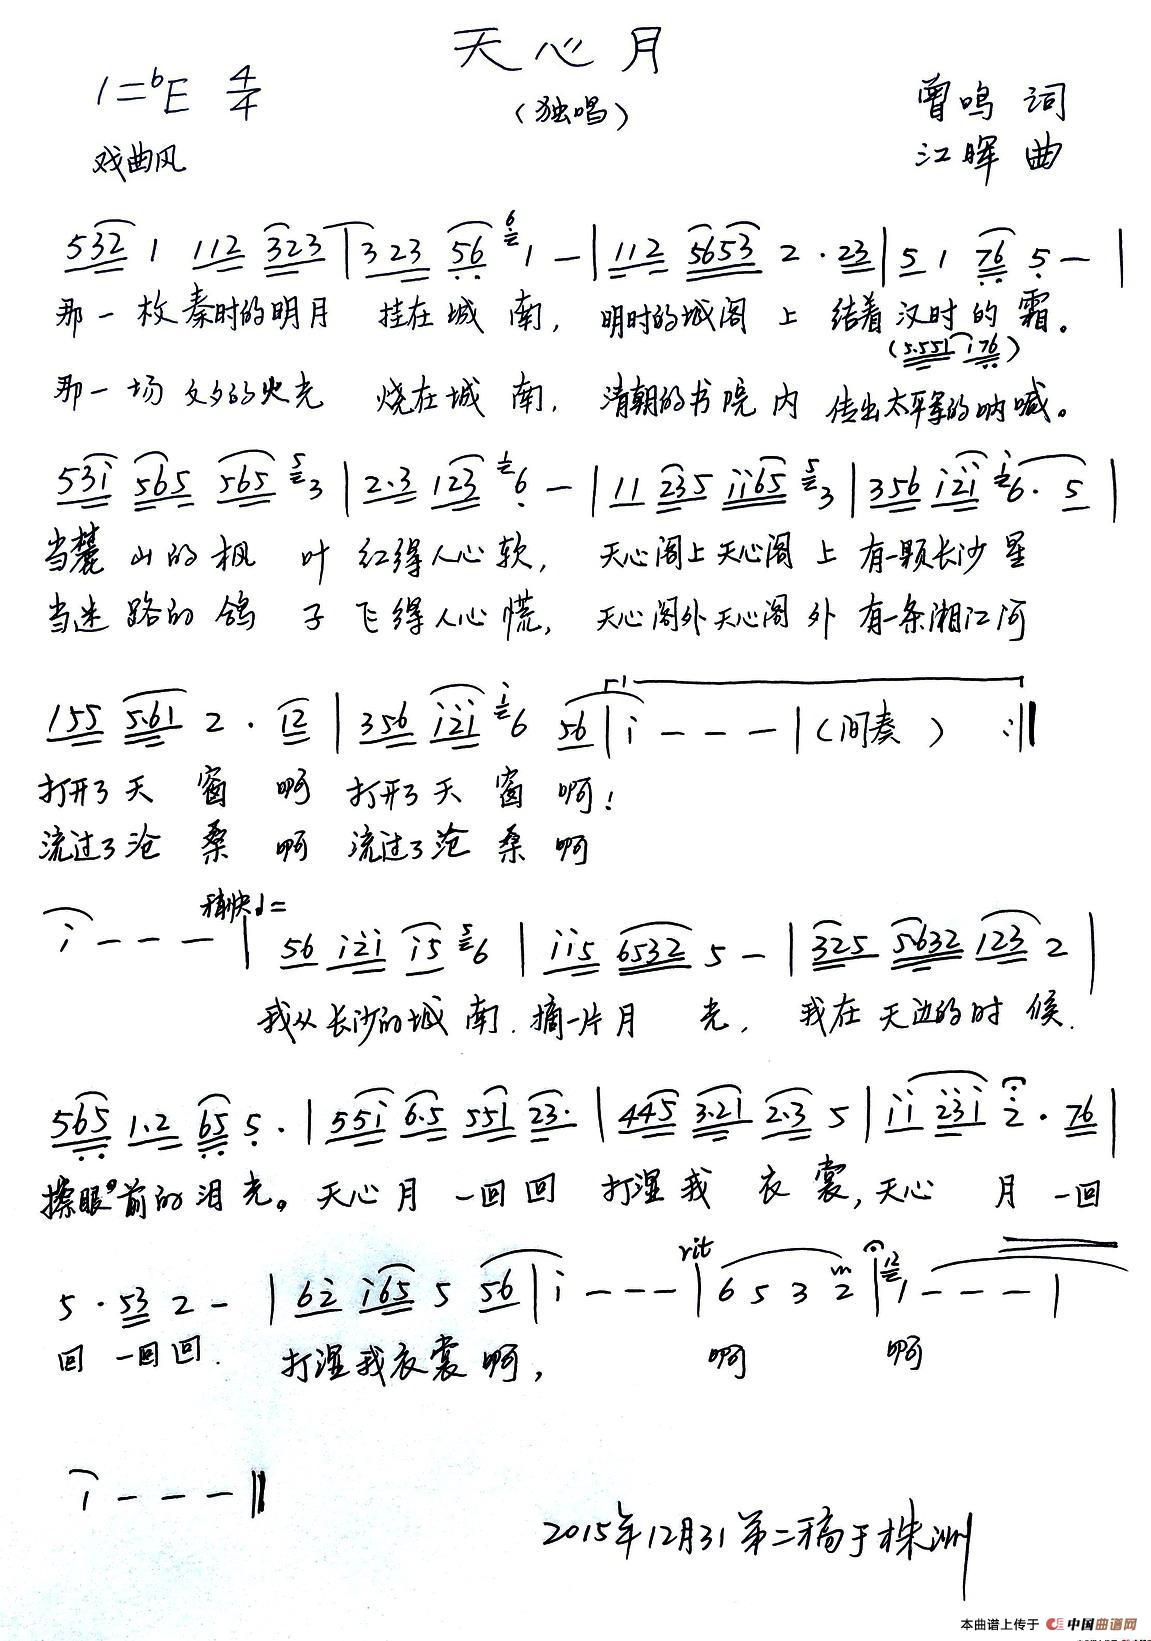 天心月
1=bE 4/4
(独唱)
曾鸣 词
戏曲风
江晖 曲
532 1 112 323 | 3 23 56 6 1 - | 112 5653 2 · 23 | 5 1 76 5 - |
那一枚秦时的明月 挂在城南, 明时的城阁上 结着汉时的霜。
(5.551 i76)
那一场文夕的火光 烧在城南, 清朝的书院内 传出太平军的呐喊。
53i 565 565 5 3 | 2·3 123 1 6 - | 11 235 ii65 5 3 | 356 i2i i 6· 5 |
当麓山的枫叶 红得人心软, 天心阁上天心阁上 有一颗长沙星
当迷路的鸽子 飞得人心慌, 天心阁外天心阁外 有一条湘江河
155 5·61 2 · 12 | 356 i2i i 6 56 | i - - - | (间奏) :||
打开了天窗啊 打开了天窗啊!
流过了沧桑啊 流过了沧桑啊
稍快 d=
i - - - | 56 i2i i5 5 6 | ii5 6532 5 - | 325 5632 123 2 |
我从长沙的城南. 摘一片月光, 我在天边的时候.
565 1·2 65 5 · | 55i 6·5 551 23· | 445 3·21 2·3 5 | ii 23i 2 · 76 |
擦眼前的泪光。天心月 一回回 打湿我衣裳, 天心月 一回
rit
5 · 53 2 - | 62 i65 5 56 | i - - - | 6 5 3 2 | 12 1 - - - |
回 一回回. 打湿我衣裳啊, 啊 啊
i - - - ||
2015年12月31第二稿于株洲
本曲谱上传于 中国曲谱网